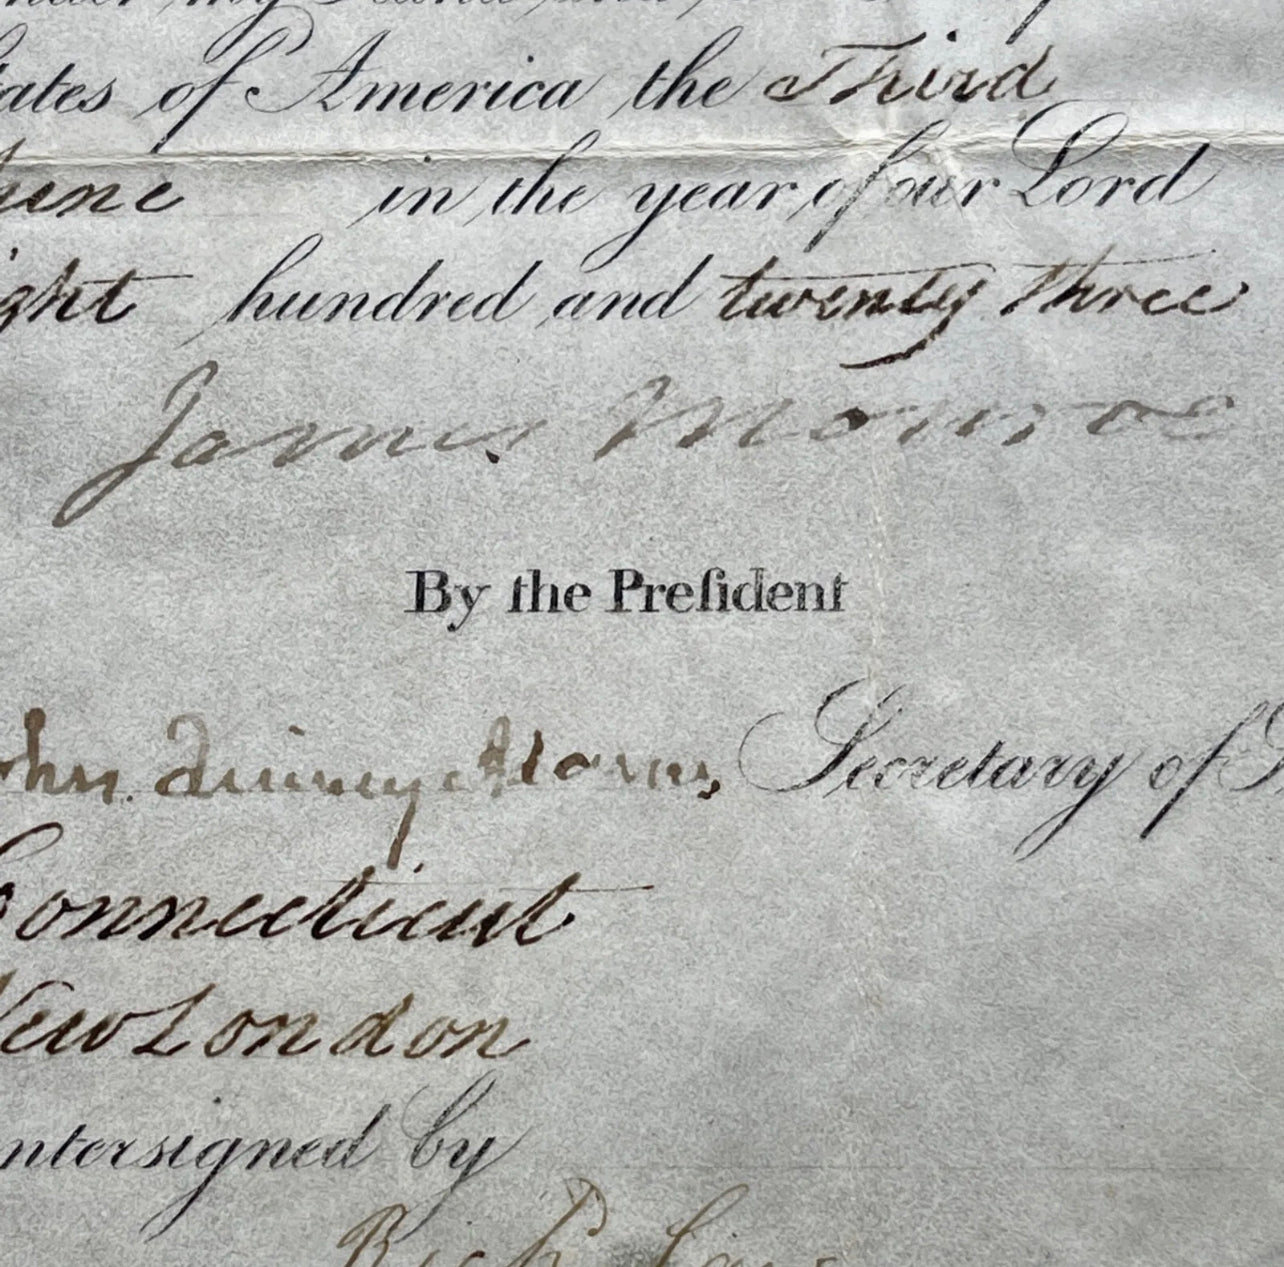 under my Hand and
States of America the Third
June in the year of our Lord
ight hundred and twenty three
James Monroe
By the Preſident
John Quincy Adams, Secretary of
Connecticut
New London
ntersigned by